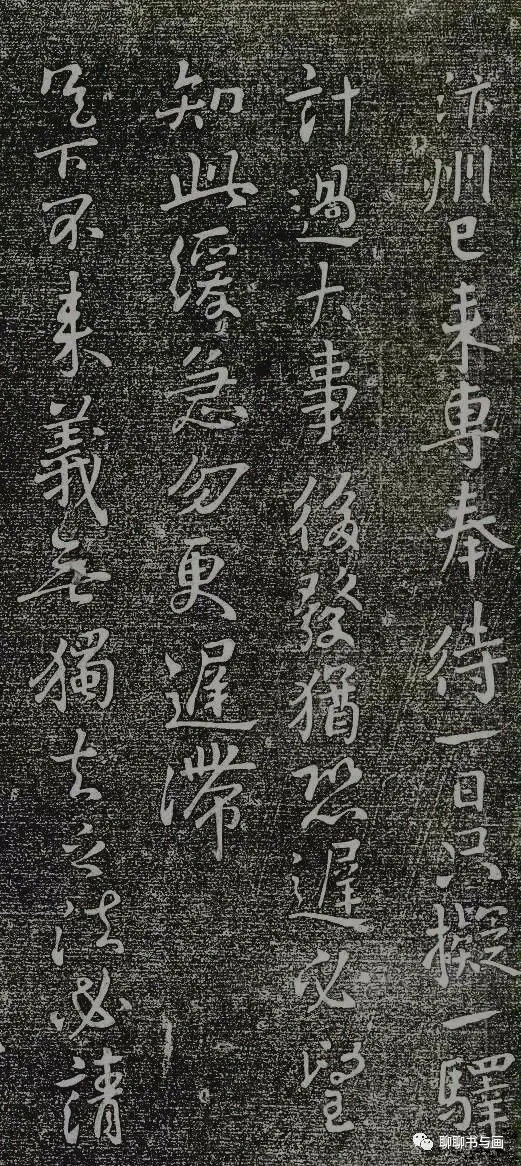 汴州已来專奉待一日只擬一驛
計過大事後發猶恐遲必望
知此緩急勿更遲滯
足下不来義無獨去之法必請
聊聊书与画